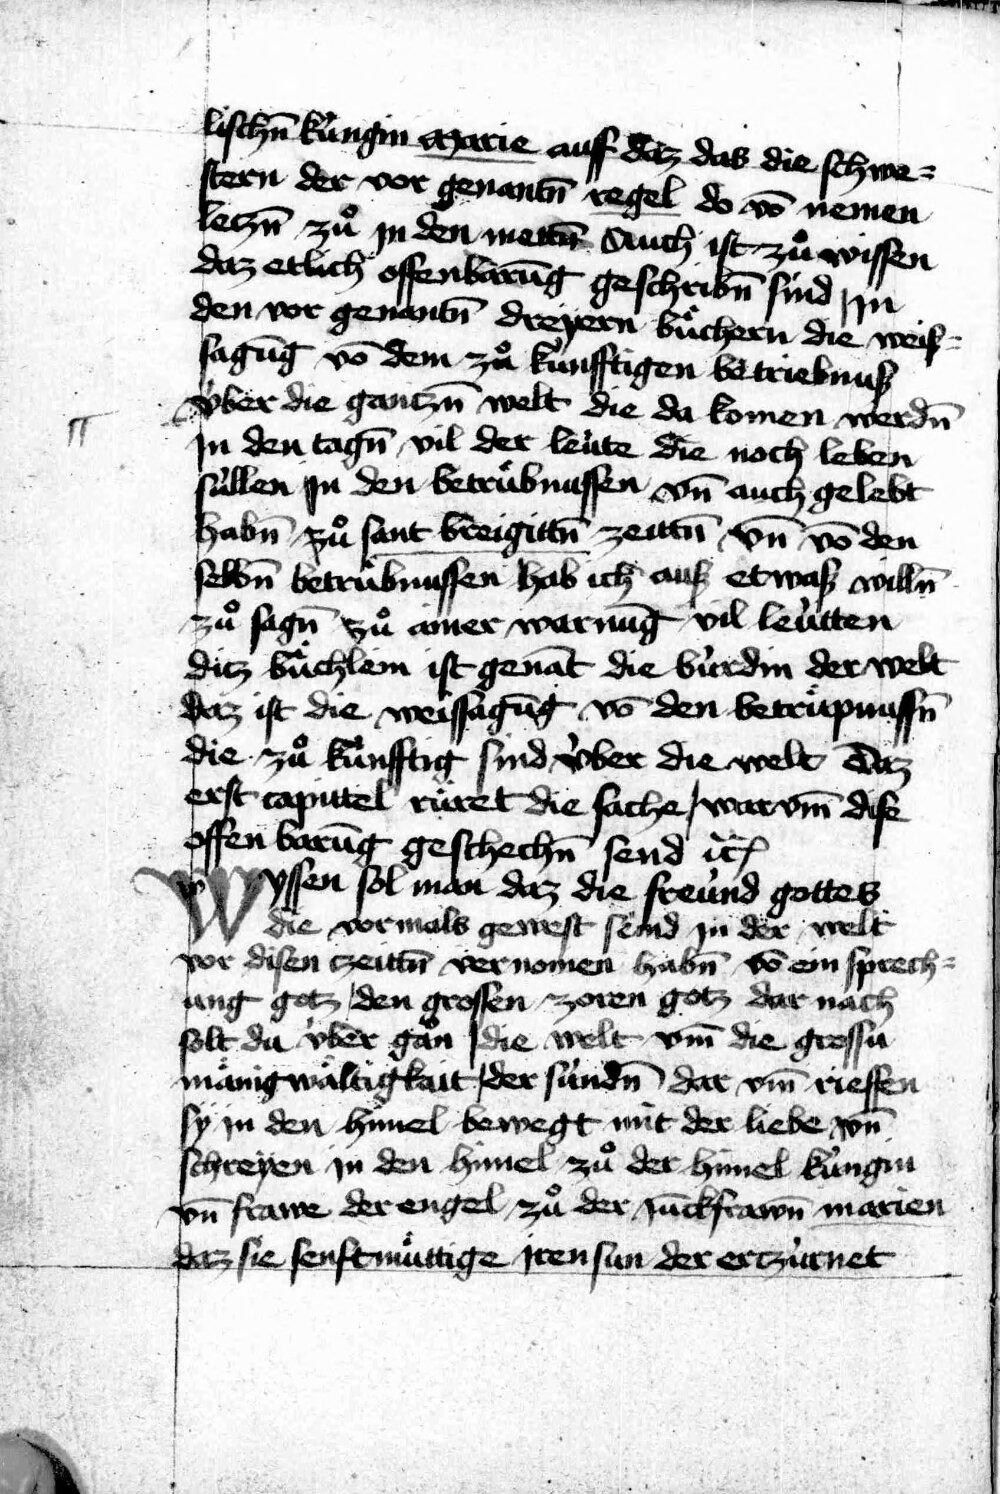 lischn̄ kúngin Marie auff daz das die schwe=
stern der vor genantn̄ regel do vō nemen
letzn̄ zů in den mettn̄ Auch ist zů wissen
daz etlich offenbarūg geschribn̄ sind in
den vor genantn̄ dreyern bůchern die weis=
sagūg vō dem zů kúnfftigen betriebnuß
v́ber die gantzn̄ welt die da komen werdn̄
in den tagn̄ vil der leúte die noch leben
súllen in den betrůbnussen vn̄ auch gelebt
habn̄ zů sant breigittn̄ zeittn̄ vn̄ vō den
selbn̄ betrůbnussen hab ich auß etwaß willn̄
zů sagn̄ zů ainer warnūg vil leútten
ditz bůchlein ist genāt die búrdin der welt
daz ist die weissagūg vō den betrůpnussn̄
die zů kúnfftig sind v́ber die welt Daz
erst capittel rúret die sache warvm̄ dise
offenbarūg geschechn̄ send
Wyssen sol man daz die freúnd gottes
die vormals gewest send in der welt
vor disen czeittn̄ vernomen habn̄ vō ein sprech=
ung gotz den grossen zoren gotz dar nach
solt da v́ber gån die welt vm̄ die grossu
mǎnigwǎltigkait der súndn̄ dar vm̄ rieffen
sy in den himel bewegt mit der liebe vn̄
schreyen in den himel zů der himel kúngin
vn̄ frawe der engel zů der iūckfrawn̄ marien
daz sie senftmůttige iren sun der erczúrnet